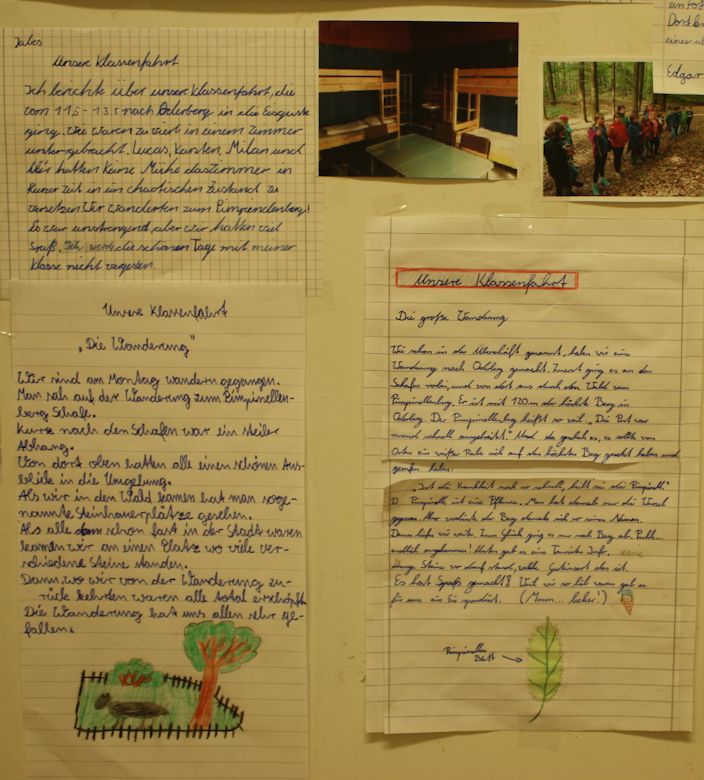 Jules
Unsere Klassenfahrt
Ich berichte über unsere Klassenfahrt, die
vom 11.5 - 13.5 nach Oderberg in die
ging. Wir waren zu viert in einem Zimmer
untergebracht, Lucas, Karsten, Milan und
Wir hatten keine Mühe das Zimmer in
kurzer Zeit in ein chaotischen Zustand zu
versetzen. Wir wanderten zum Pimpinellenberg!
Es war anstrengend, aber wir hatten viel
Spaß. Ich werde die schönen Tage mit meiner
Klasse nicht
Unsere Klassenfahrt
„Die Wanderung"
Wir sind am Montag wandern gegangen.
Man sah auf der Wanderung zum Pimpinellen-
berg Schafe.
Kurz nach den Schafen war ein steiler
Abhang.
Von dort oben hatten alle einen schönen Aus-
blick in die Umgebung.
Als wir in den Wald kamen hat man soge-
nannte Steinhauerplätze gesehen.
Als alle schon fast in der Stadt waren
kamen wir an einen Platz wo viele ver-
schiedene Steine standen.
Dann, wo wir von der Wanderung zu-
rück kehrten waren alle total erschöpft.
Die Wanderung hat uns allen sehr ge-
fallen.
Edgar
Unsere Klassenfahrt
Die große Wanderung
Wie schon in der Überschrift genannt, haben wir eine
Wanderung nach Oderberg gemacht. Zuerst ging es an den
Schafen vorbei, und von dort aus durch den Wald zum
Pimpinellenberg. Er ist mit 120 m der höchste Berg in
Oderberg. Der Pimpinellenberg heißt so viel: „Die Pest war
manch schnell ausgebreitet." Und da geschah es, es sollte von
Osten ein weißer Rabe sich auf den höchsten Berg gesetzt haben und
gerufen haben:
„Ist die Krankheit noch so schnell, heilt sie die Pimpinell"
D. Pimpinelle ist eine Pflanze. Man hat damals nur die Wurzel
gegessen. Also verdiente der Berg damals sich so seinen Namen.
Dann liefen wir weiter. Zum Glück ging es nur noch Berg ab. Puhh...
endlich angekommen! Unten gab es eine Touristen Info.
Steine wo drauf stand, welche Gesteinsart das ist.
Es hat Spaß gemacht! Weil wir so lieb waren gab es
für uns ein Eis spendiert. (Mmm... lecker!)
Pimpinellen
Blatt